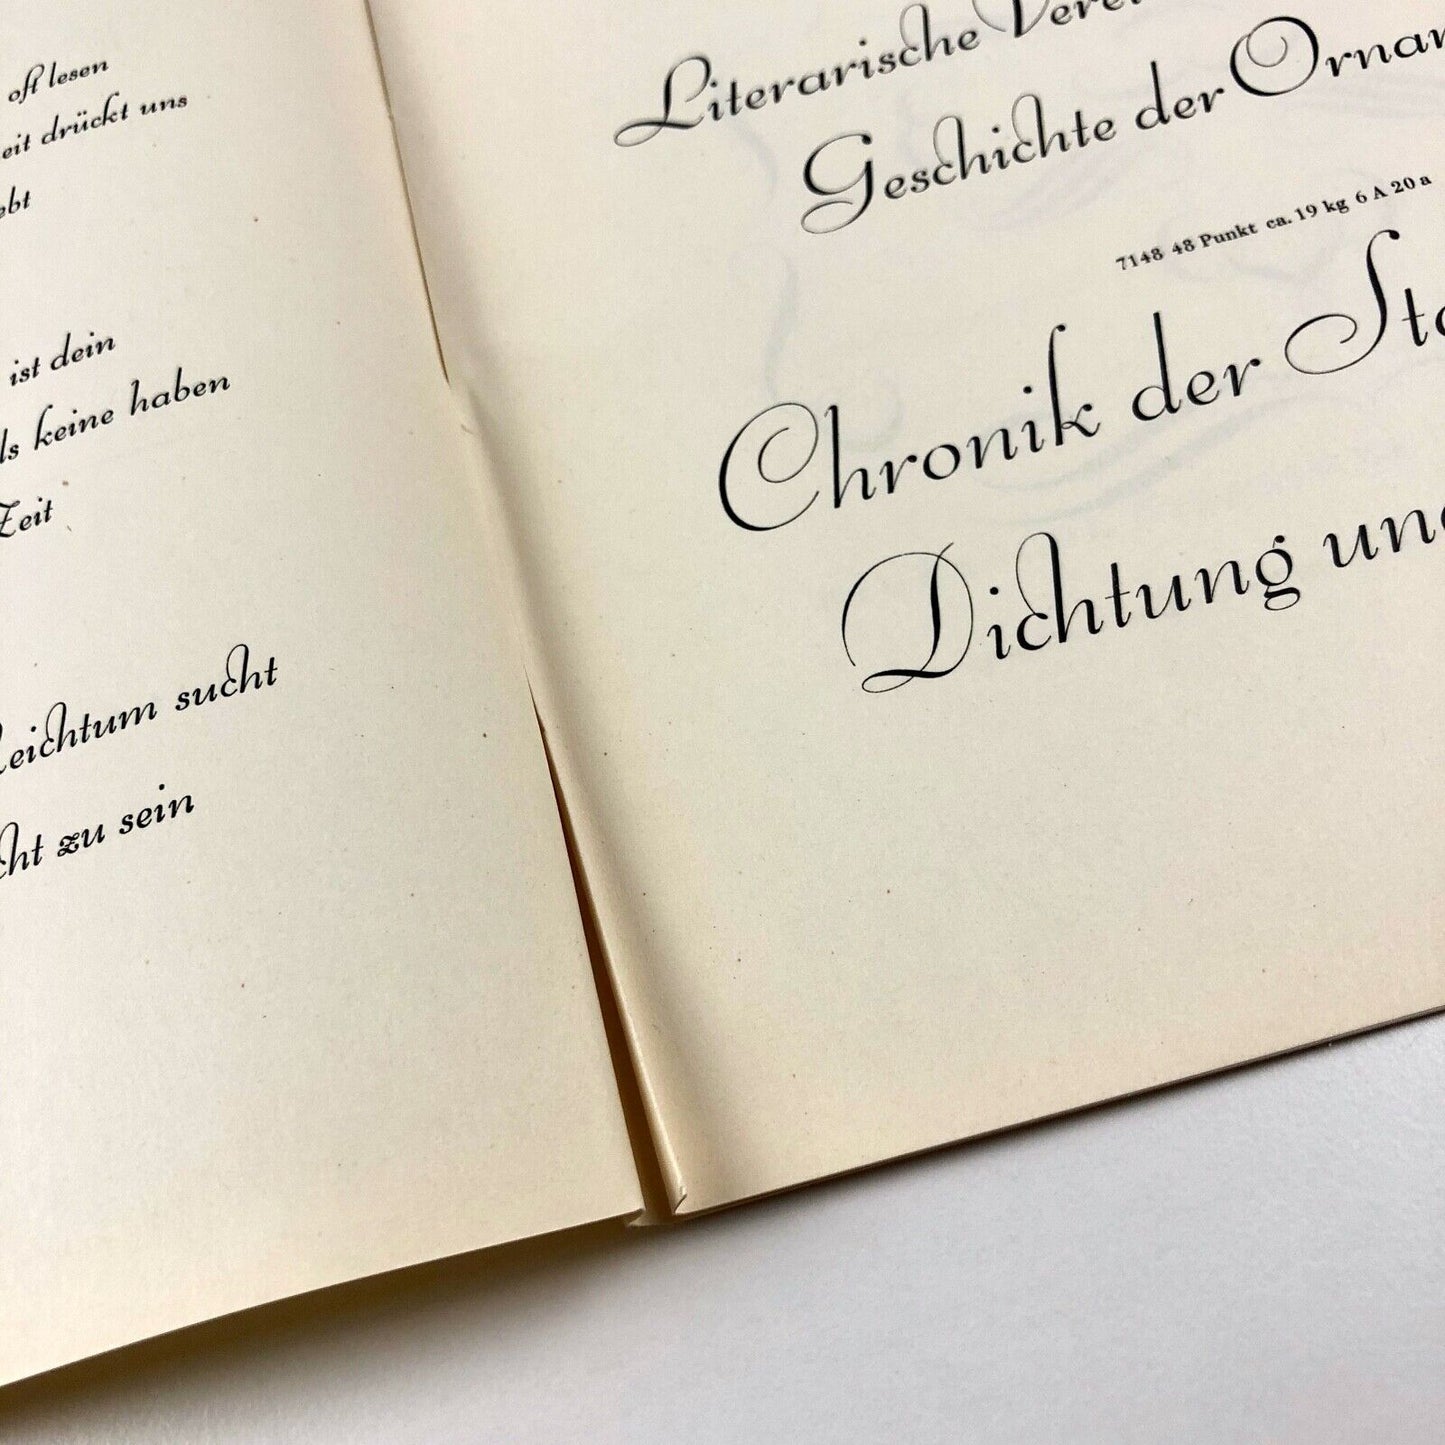 oft lesen
eit drückt uns
ebt
ist dein
ls keine haben
Zeit
Reichtum sucht
cht zu sein
Literarische
Geschichte der
7148 48 Punkt ca. 19 kg 6 A 20 a
Chronik der
Dichtung